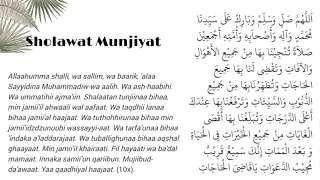 Sholawat Munjiyat
Allaahumma shalli, wa sallim, wa baarik, 'alaa
Sayyidina Muhammadiw wa aalih. Wa ash-haabihi.
Wa ummatihii ajma'iin. Shalaatan tunjiinaa bihaa,
min jamii'il ahwaali wal aafaat. Wa taqdhii lanaa
bihaa jamii'al haajaat. Wa tuthohhirunaa bihaa min
jamii'idzdzunuubi wassayyi-aat. Wa tarfa'unaa bihaa
'indaka a'laddarajaat. Wa tuballighunaa bihaa aqshal
ghaayaat. Min jamii'il khairaati. Fil hayaati wa ba'dal
mamaati. Innaka samii'un qariibun. Mujiibud-
da'awaat. Yaa qaadhiyal haajaat. (10x).
اَللّٰهُمَّ صَلِّ وَسَلِّمْ وَبَارِكْ عَلَى سَيِّدِنَا
مُحَمَّدٍ وَآلِهِ وَأَصْحَابِهِ وَأُمَّتِهِ أَجْمَعِيْنَ
صَلَاةً تُنْجِيْنَا بِهَا مِنْ جَمِيْعِ الْأَهْوَالِ
وَالْآفَاتِ وَتَقْضِى لَنَا بِهَا جَمِيْعَ
الْحَاجَاتِ وَتُطَهِّرُنَا بِهَا مِنْ جَمِيْعِ
الذُّنُوْبِ وَالسَّيِّئَاتِ وَتَرْفَعُنَا بِهَا عِنْدَكَ
أَعْلَى الدَّرَجَاتِ وَتُبَلِّغُنَا بِهَا أَقْصَى
الْغَايَاتِ مِنْ جَمِيْعِ الْخَيْرَاتِ فِى الْحَيَاةِ
وَ بَعْدَ الْمَمَاتِ إِنَّكَ سَمِيْعٌ قَرِيْبٌ
مُجِيْبُ الدَّعَوَاتِ يَاقَاضِىَ الْحَاجَاتِ